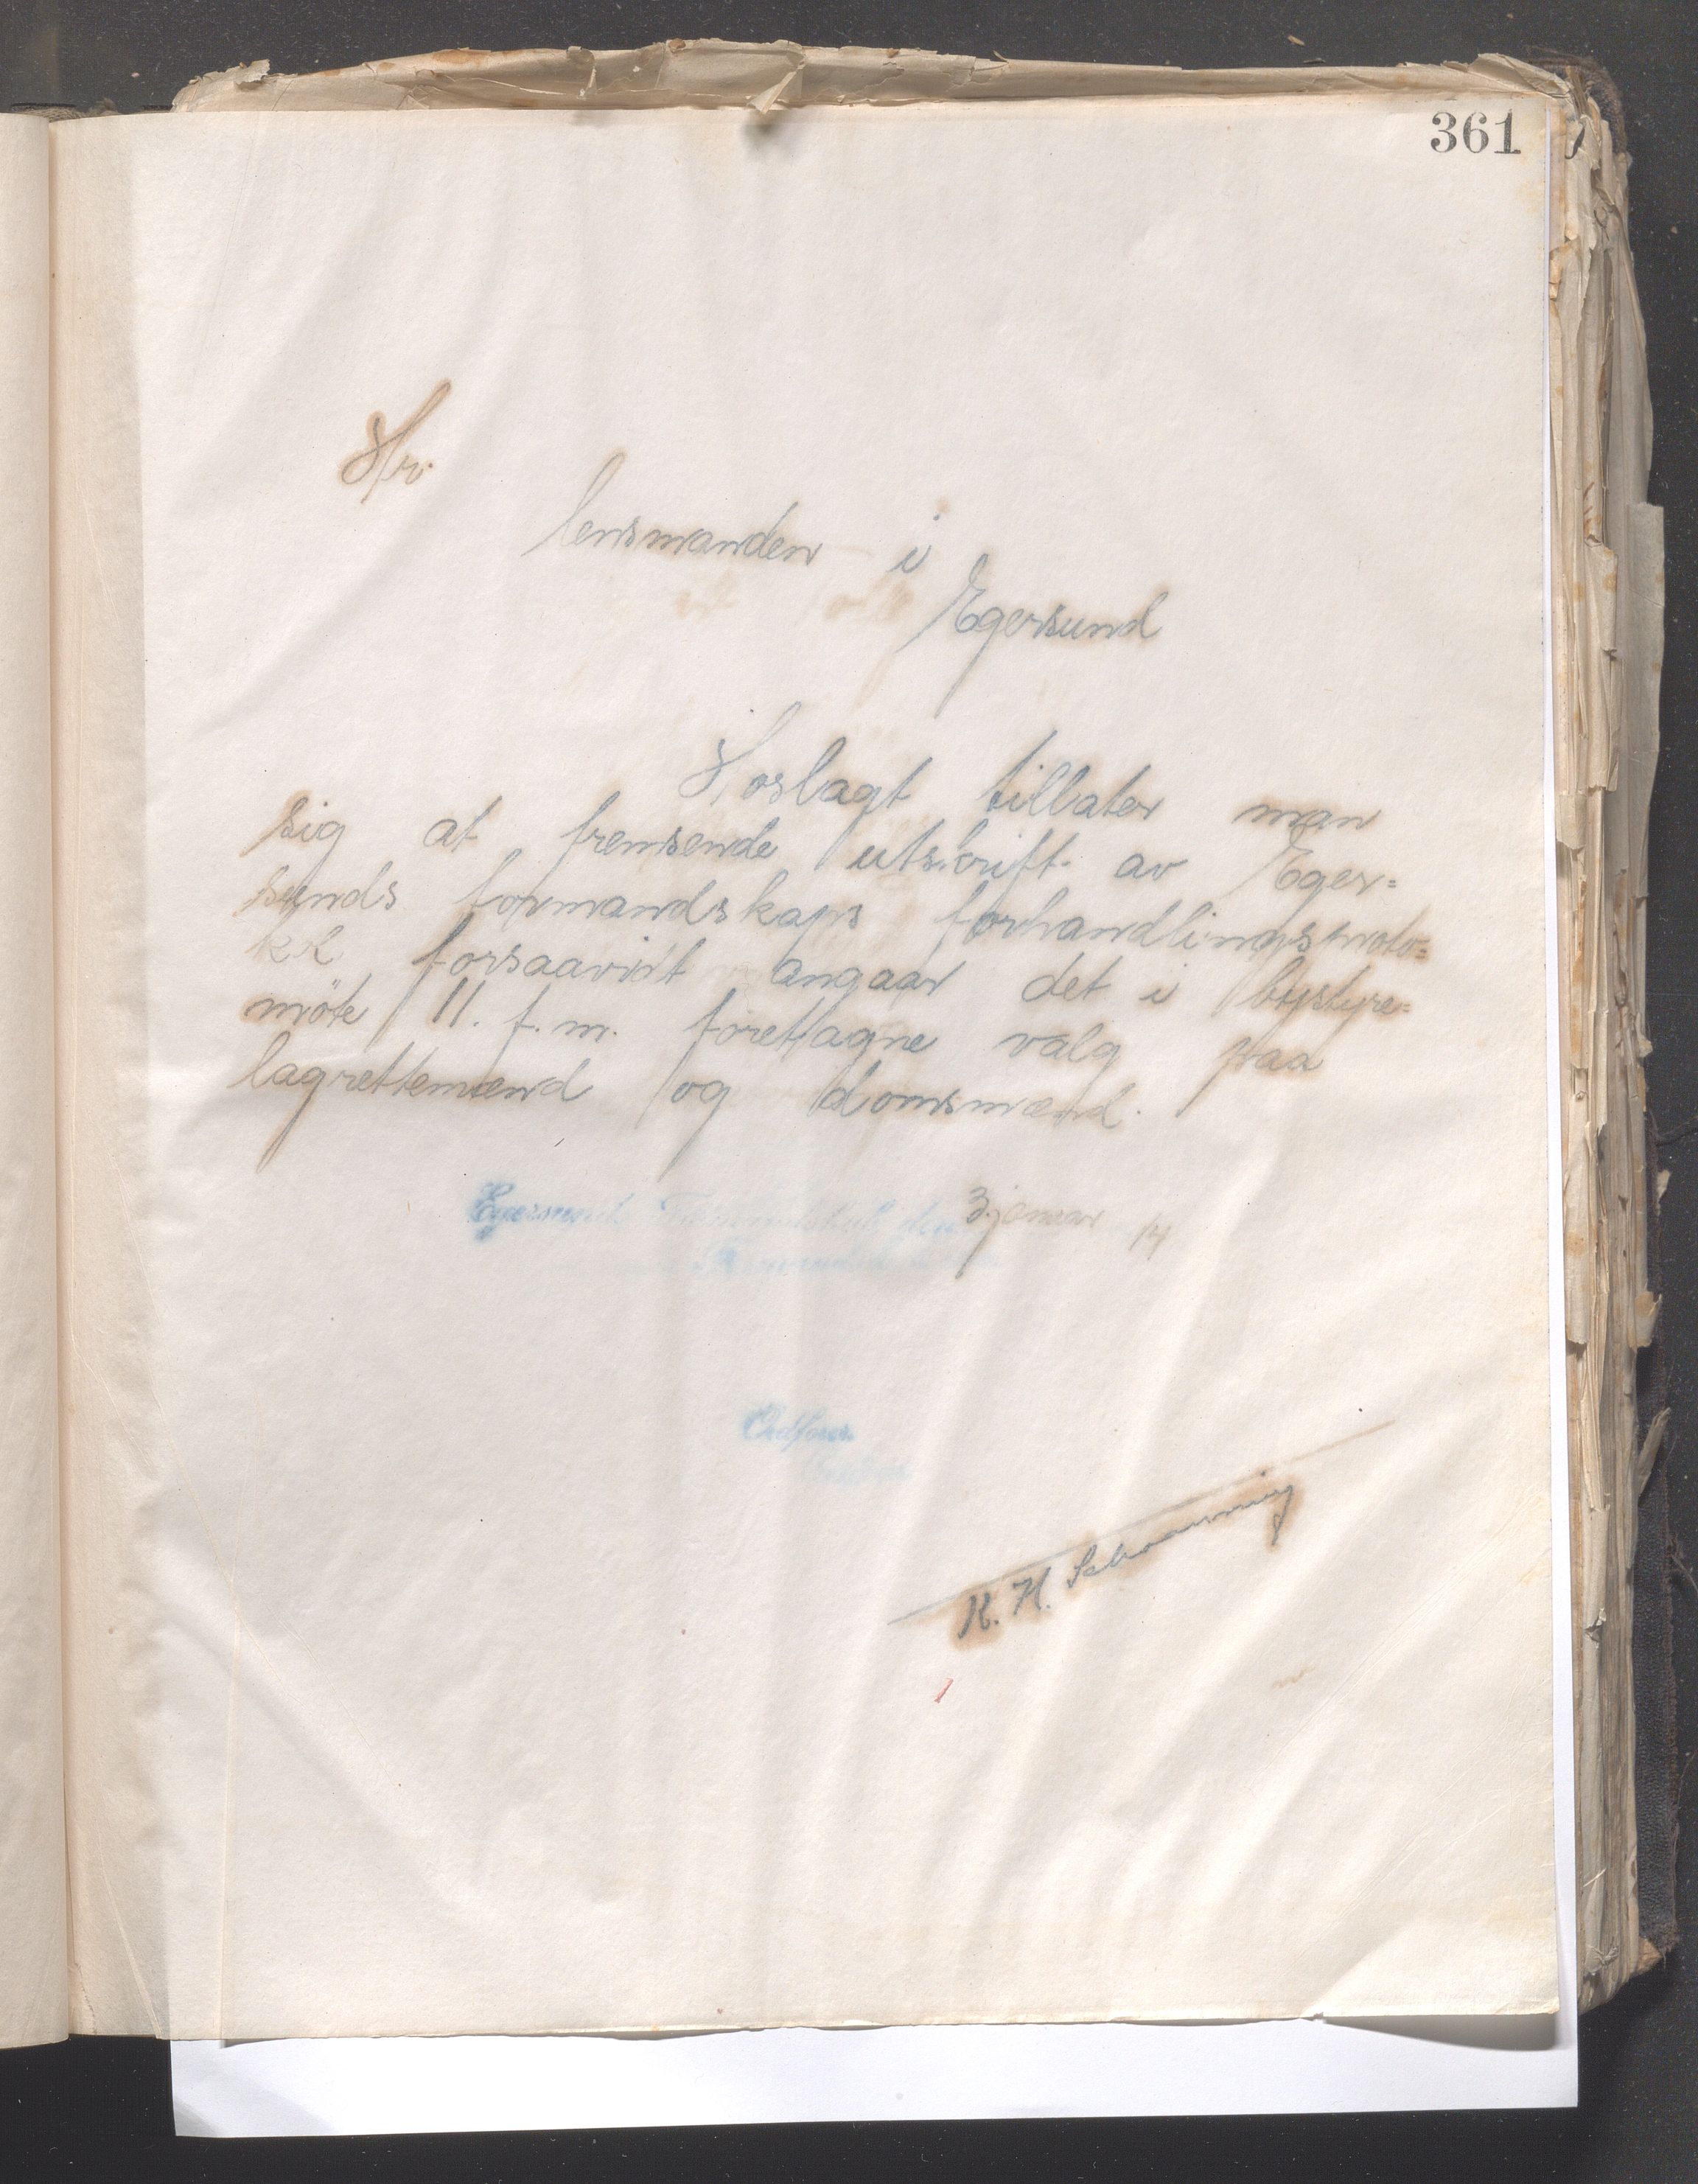 361
Hr.
lensmanden i
Egersund
Hoslagt tillater man
sig at fremsende utskrift av Eger=
sunds formandskaps forhandlingsproto=
kl forsaavidt angaar det i bystyre=
möte 11. f. m. foretagne valg paa
lagrettemænd og domsmænd.
Egersunds Formandskab den 3 januar 14
Ordfører
K. H. Schwanning